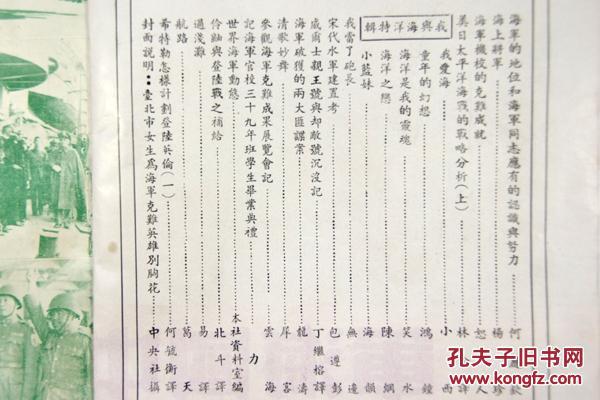 海軍的地位和海軍同志應有的認識與努力 何
海上將軍 楊珍
海軍機校的克難成就 恕人
美日太平洋海戰的戰略分析(上) 林譯
我與海洋特輯
我愛海 小西
童年的幻想 鴻鐘
海洋是我的靈魂 笑水
海洋之戀 陳綱
小藍妹 海韻
我當了砲長 無邊
宋代水軍建置考 包遵彭
威爾士親王號與却敵號沉沒記 丁繼榕譯
海軍破獲的兩大匪諜案 龍濤
清歌妙舞 犀客
參觀海軍克難成果展覽會記 雲海
記海軍官校三十九年班學生畢業典禮 力
世界海軍動態 本社資料室編
伶舢與登陸戰之補給 北斗譯
過淺灘 易譯
航路 葛天
希特勒怎樣計劃登陸英倫(一) 何毓衡譯
封面說明：臺北市女生為海軍克難英雄別胸花 中央社攝
孔夫子旧书网
www.kongfz.com